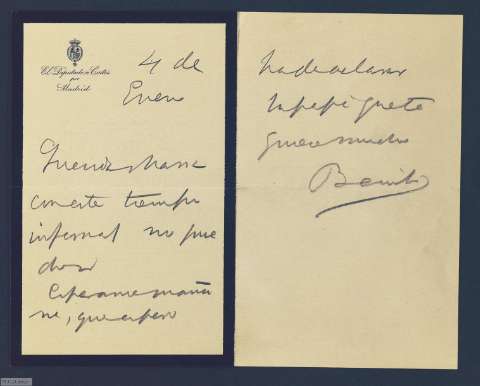 El Diputado a Cortes
por
Madrid
4 de
Enero
Querida
con este tiempo
infernal no pue
do ir
Esperame maña
na, que espero
ha de aclarar
tu pepe q. te
quiere mucho
Benito